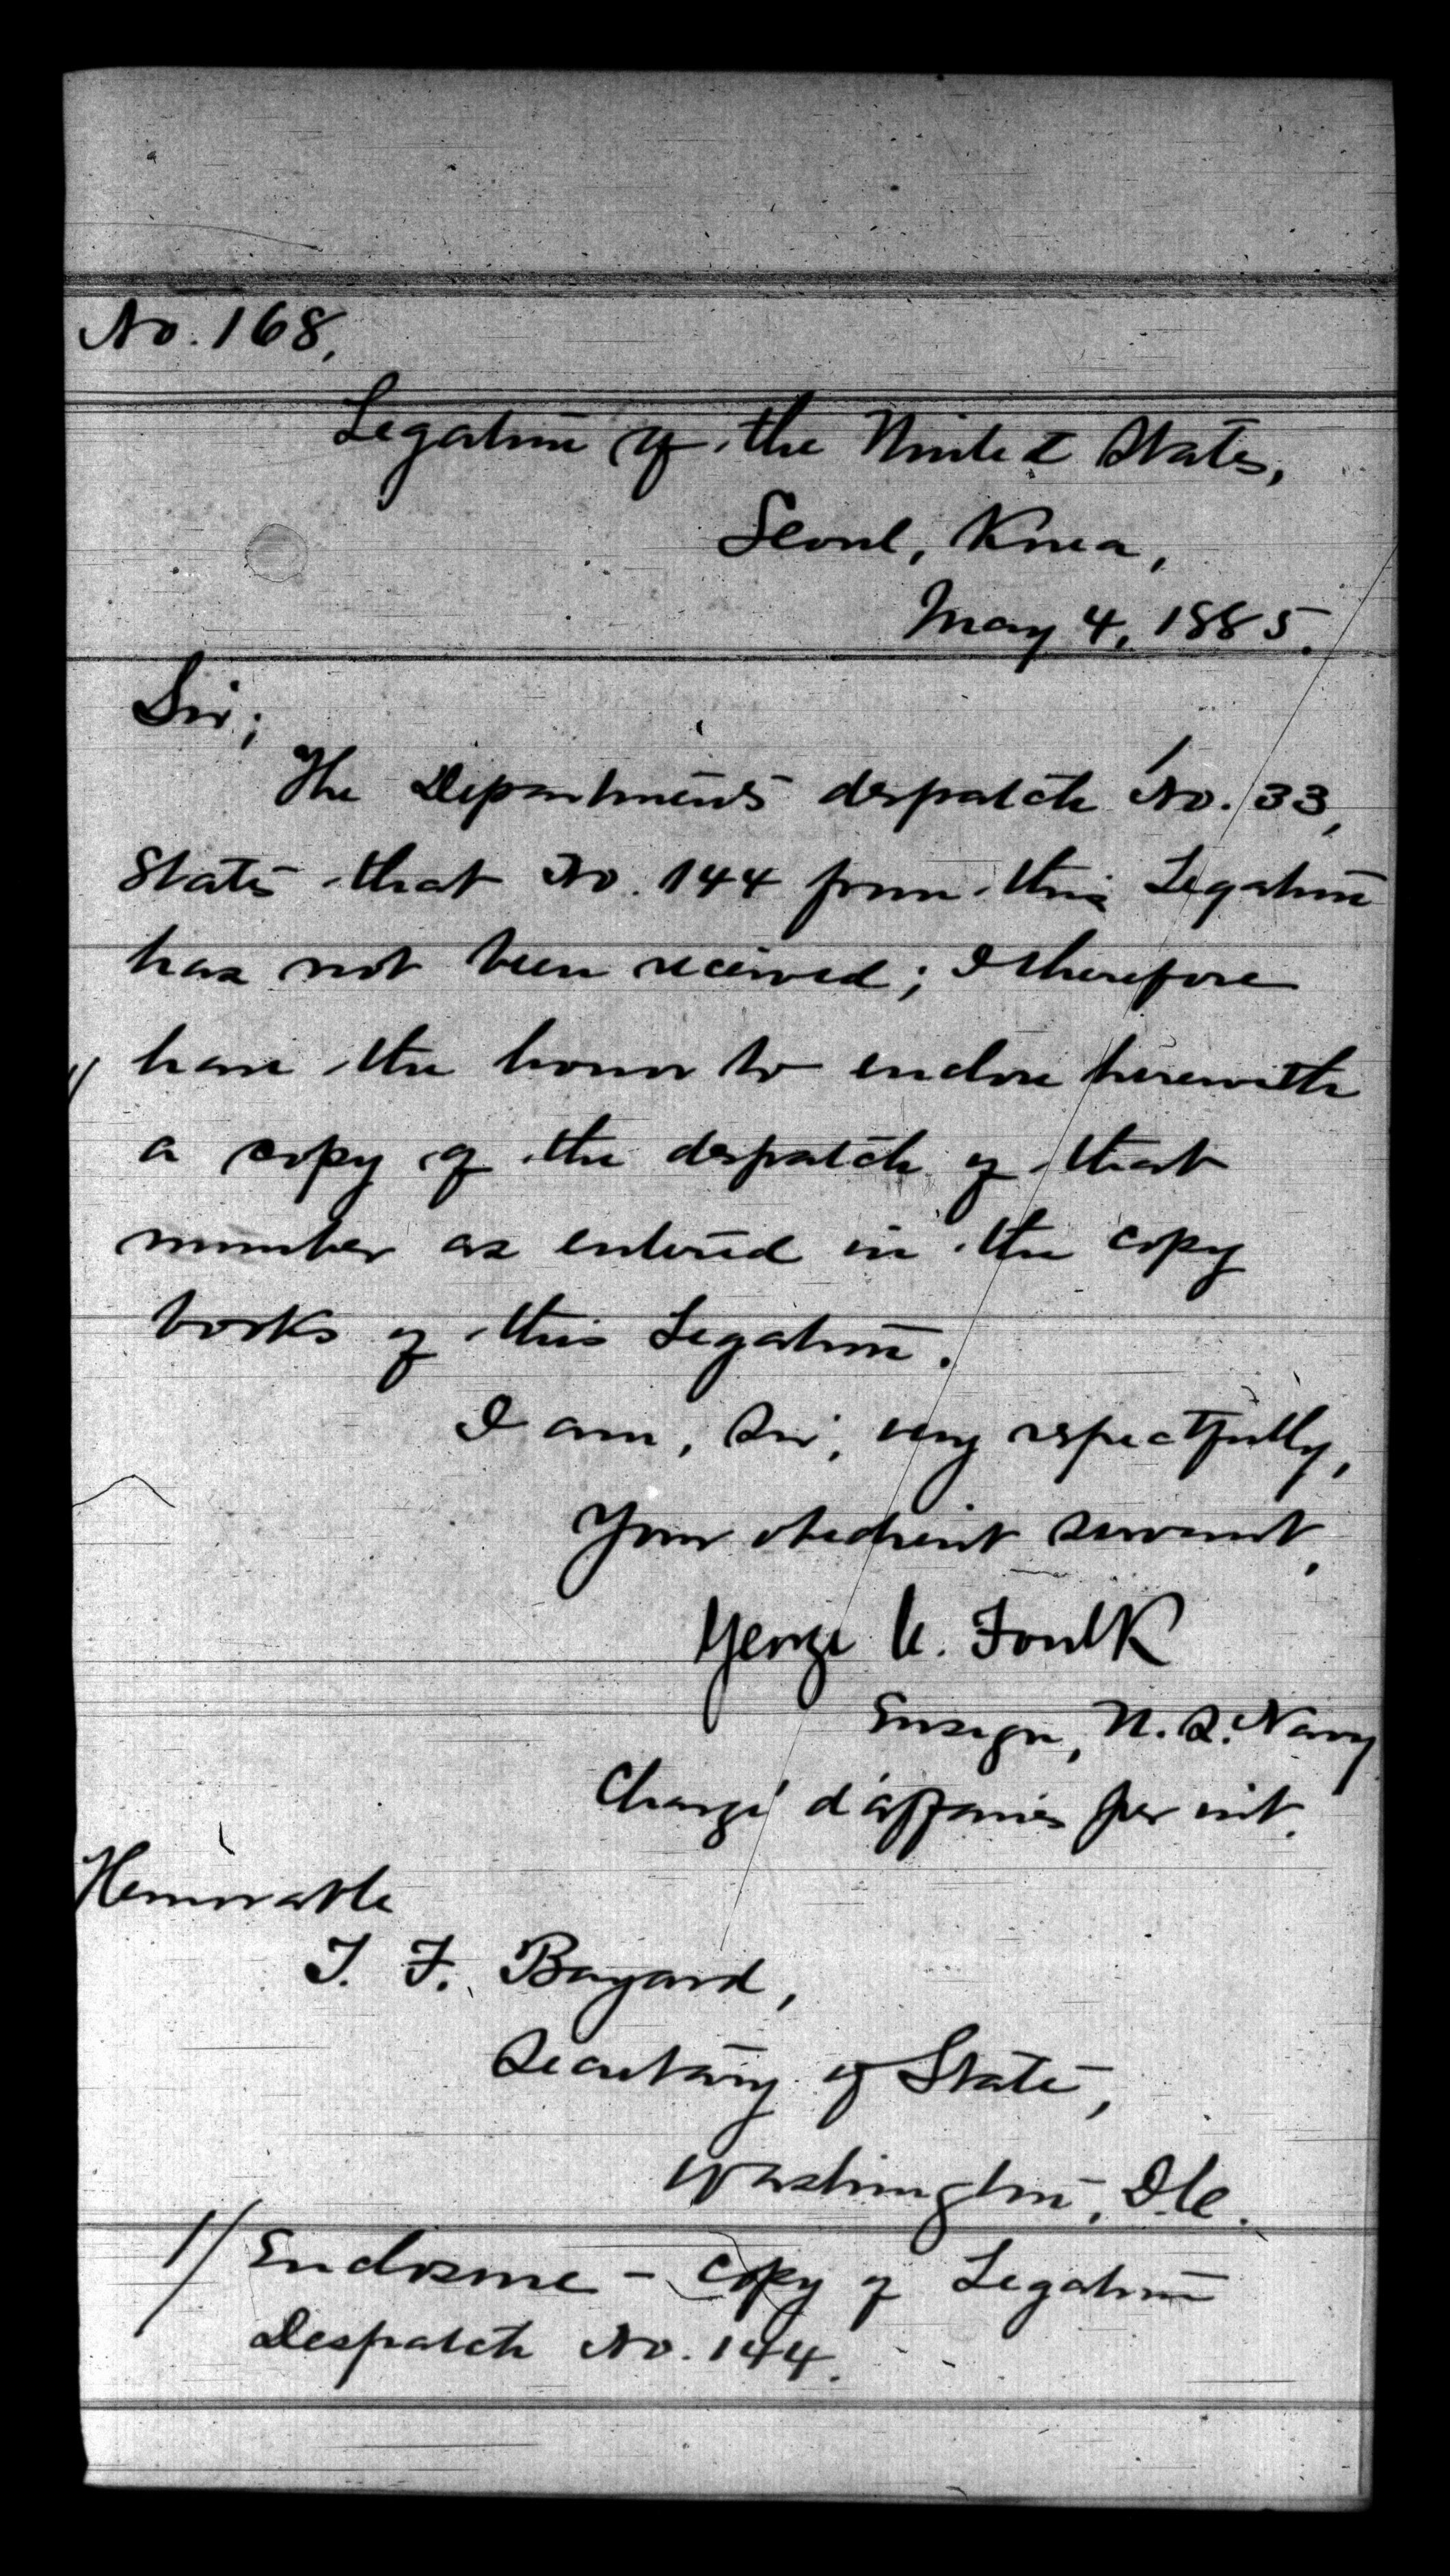 No. 168,
Legation of the United States,
Seoul, Korea,
May 4, 1885.
Sir;
The Department's despatch No. 33,
states that No. 144 from this Legation
has not been received; I therefore
1/ have the honor to enclose herewith
a copy of the despatch of that
number as entered in the copy
books of this Legation.
I am, Sir, very respectfully,
Your obedient servant,
George C. Foulk
Ensign, U.S. Navy
Chargé d'affaires per int.
Honorable
T. F. Bayard,
Secretary of State,
Washington, D.C.
1/ Enclosure - copy of Legation
Despatch No. 144.